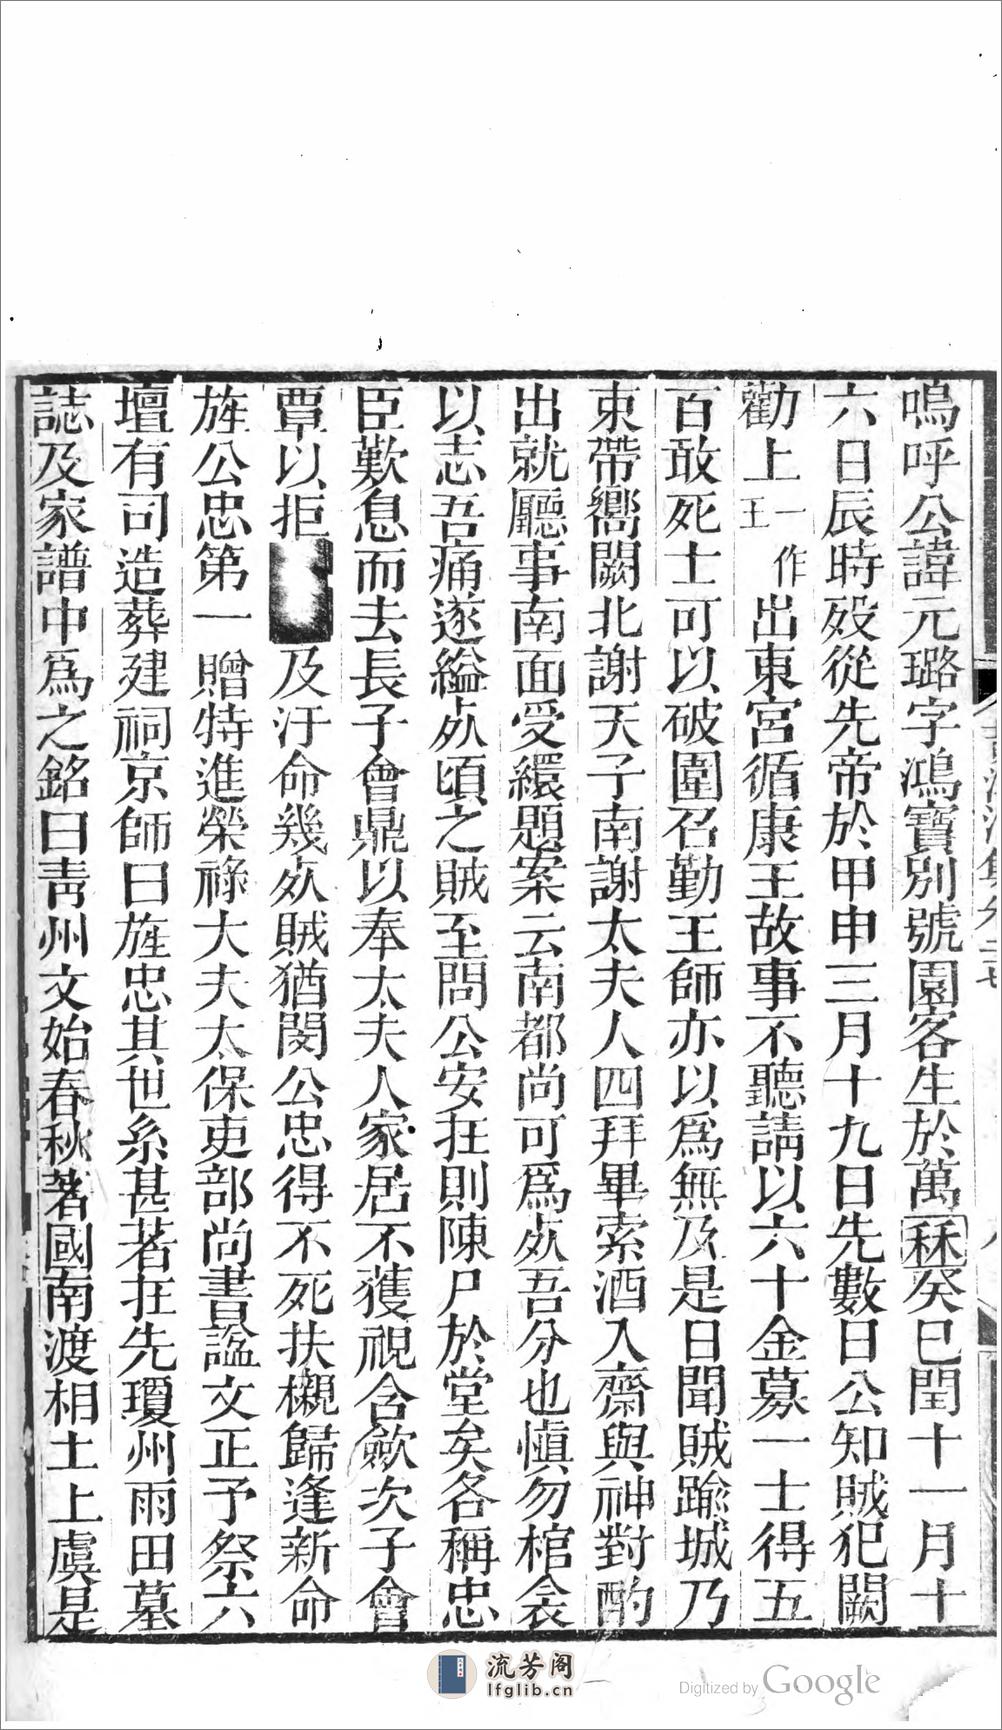 嗚呼公諱元璐字鴻寶別號園客生於萬𥝠癸巳閏十一月十
六日辰時歿從先帝於甲申三月十九日先數日公知賊犯闕
勸上一作王出東宮循康王故事不聽請以六十金募一士得五
百敢死士可以破圍召勤王師亦以爲無及是日聞賊踰城乃
束帶嚮闕北謝天子南謝太夫人四拜畢索酒入齋與神對酌
出就廳事南面受繯題案云南都尚可爲死吾分也愼勿棺衾
以志吾痛遂縊死頃之賊至問公安在則陳尸於堂矣各稱忠
臣歎息而去長子會鼎以奉太夫人家居不獲視含歛次子會
覃以拒 及汙命幾死賊猶閔公忠得不死扶櫬歸逢新命
旌公忠第一 贈特進榮祿大夫太保吏部尚書謚文正予祭六
壇有司造葬建祠京師曰旌忠其世系甚著在先瓊州雨田墓
誌及家譜中爲之銘曰靑州文始春秋著國南渡相土上虞是
流芳阁
lfglib.cn
Digitized by Google